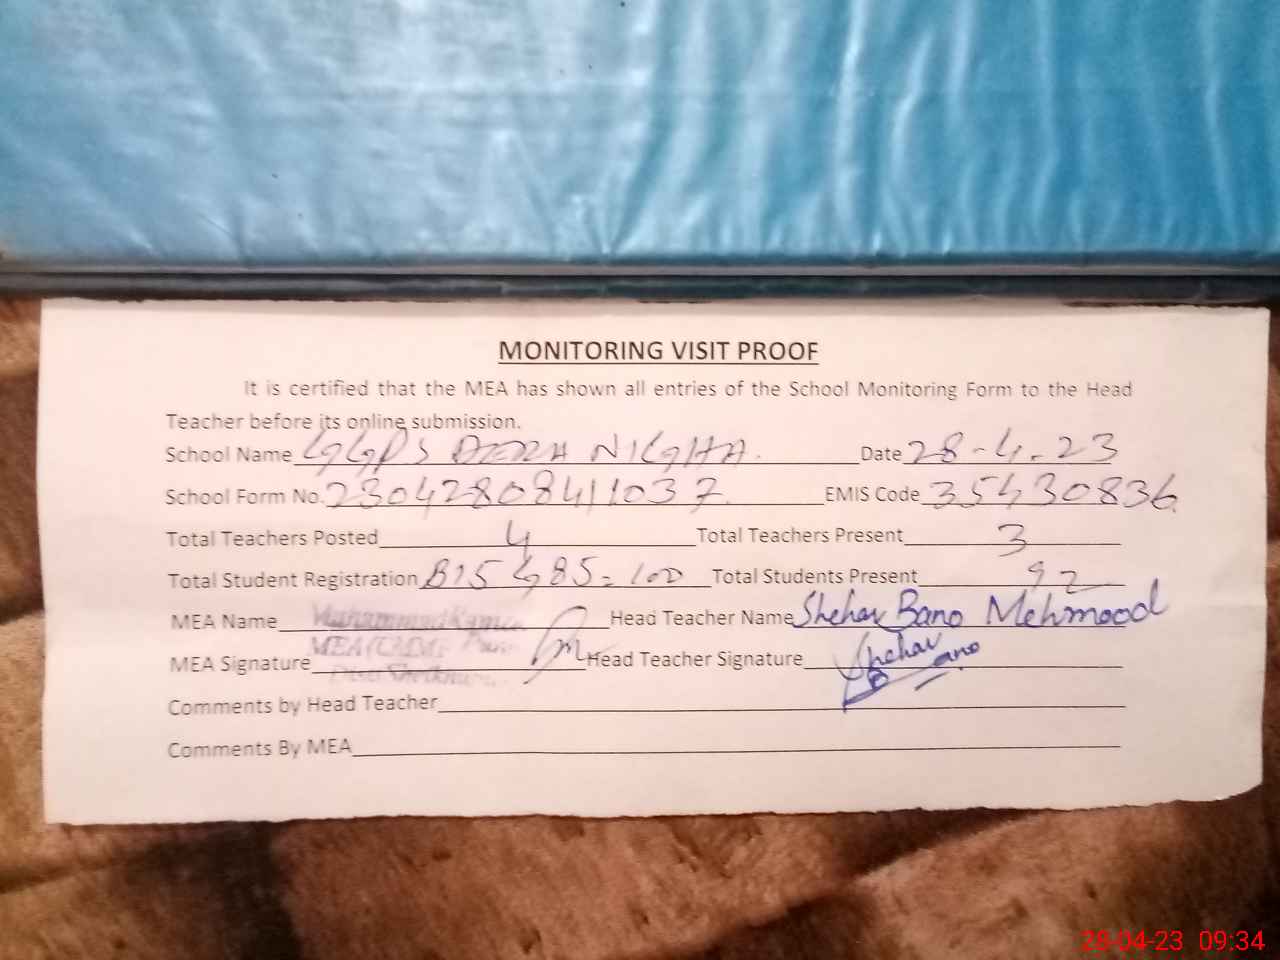 MONITORING VISIT PROOF
It is certified that the MEA has shown all entries of the School Monitoring Form to the Head
Teacher before its online submission.
School Name GGPS DERA NIGHA. Date 28-4-23
School Form No. 23042808411037 EMIS Code 35430836
Total Teachers Posted 4 Total Teachers Present 3
Total Student Registration B15 G85=100 Total Students Present 92
MEA Name Muhammad Head Teacher Name Shehar Bano Mehmood
MEA Signature Head Teacher Signature Shehar Bano
Comments by Head Teacher
Comments By MEA
28-04-23 09:34